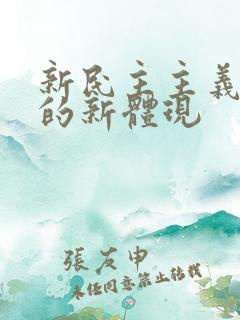 新民主主義
的新體現
張友申
未经同意禁止转载